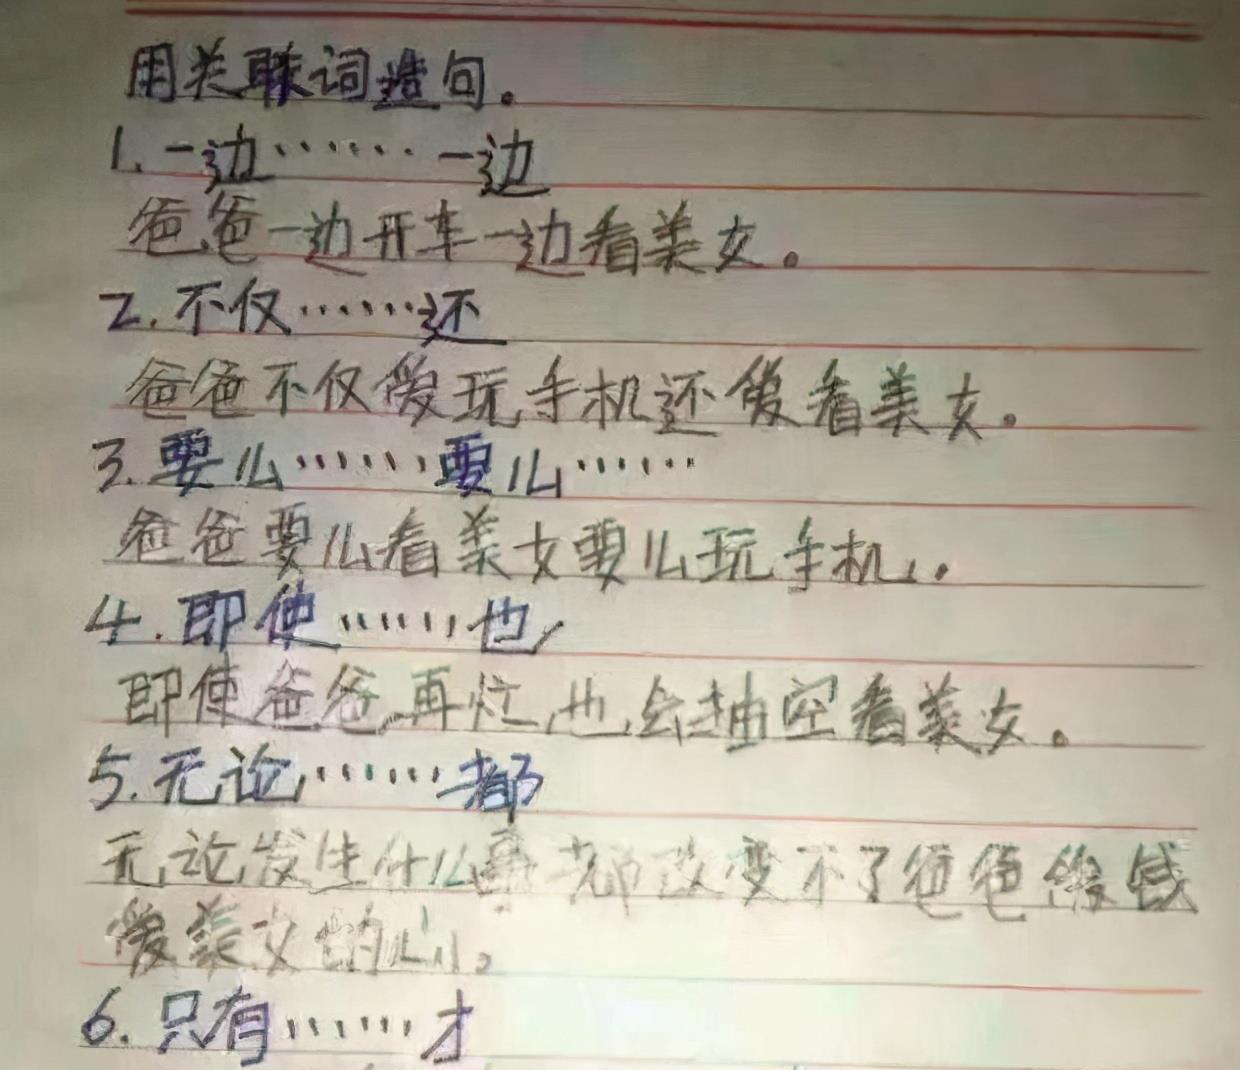 用关联词造句。
1.一边……一边
爸爸一边开车一边看美女。
2.不仅……还
爸爸不仅爱玩手机还爱看美女。
3.要么……要么……
爸爸要么看美女要么玩手机。
4.即使……也
即使爸爸再忙,也会抽空看美女。
5.无论……都
无论发生什么事都改变不了爸爸
爱美女的心。
6.只有……才